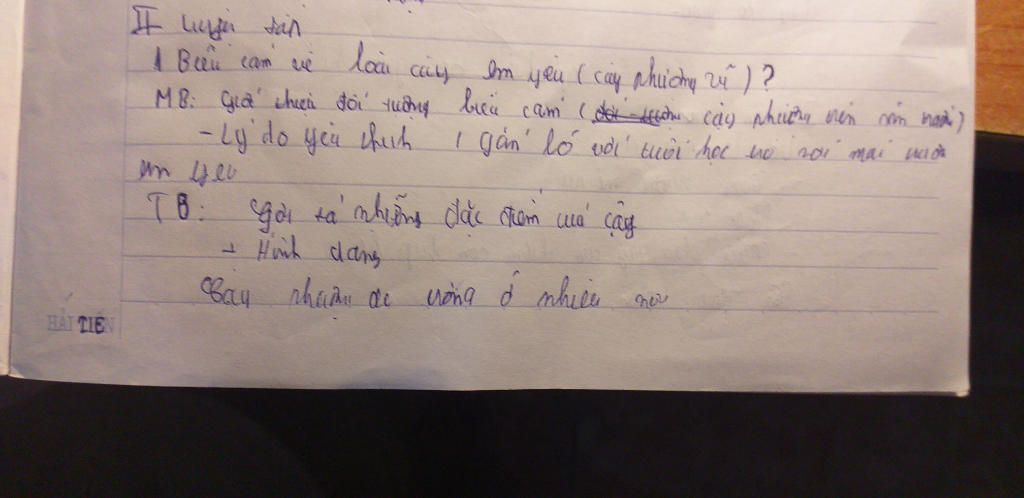 II Luyện tập
1 Biểu cảm về loài cây em yêu (cây phượng vĩ)?
MB: Giới thiệu đối tượng biểu cảm ( cây phượng trên sân trường)
- Lý do yêu thích ( gắn bó với tuổi học trò với mái trường
em yêu
TB: Gợi tả những đặc điểm của cây
+ Hình dáng
Cây phượng đc trồng ở nhiều nơi
HẢI TIẾN